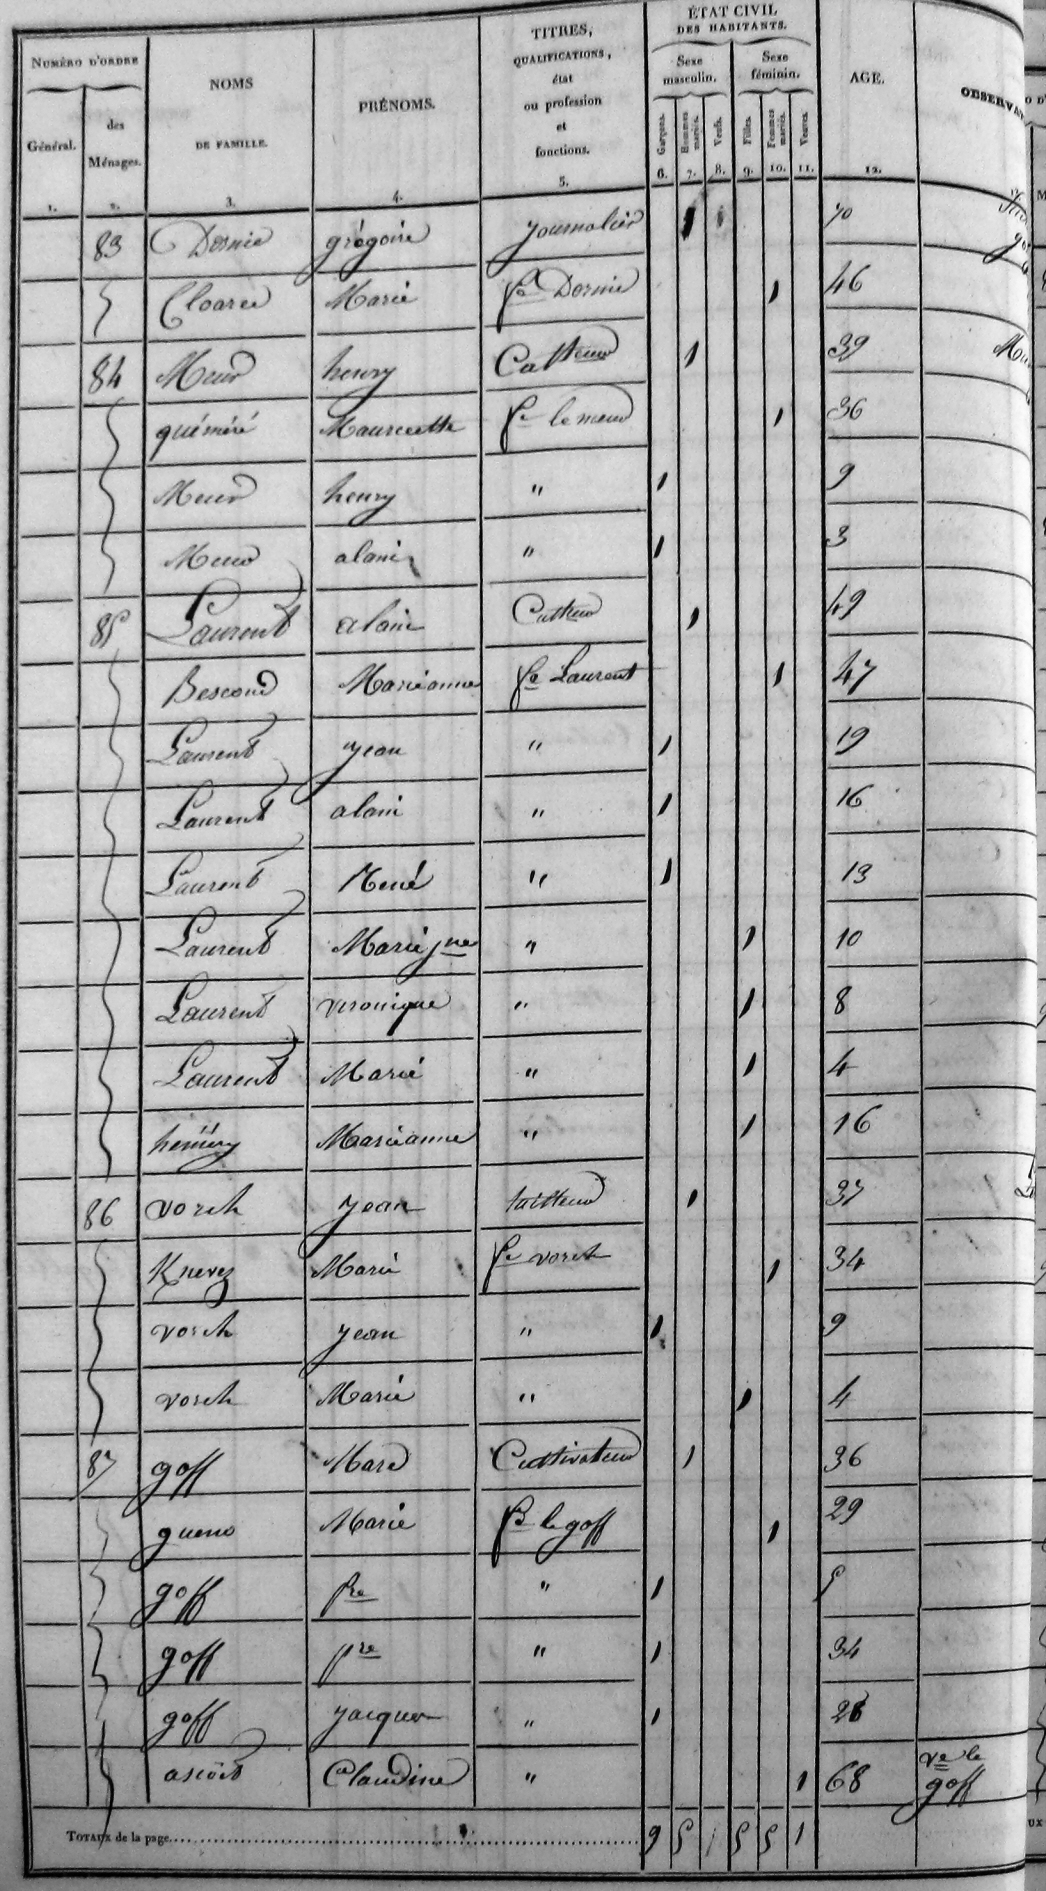 NUMÉRO D'ORDRE
Général.
des Ménages.
NOMS DE FAMILLE.
PRÉNOMS.
TITRES, QUALIFICATIONS, état ou profession et fonctions.
ÉTAT CIVIL DES HABITANTS.
Sexe masculin.
Sexe féminin.
Garçons. Hommes mariés. Veufs. Filles. Femmes mariées. Veuves.
AGE.
1. 2. 3. 4. 5. 6. 7. 8. 9. 10. 11. 12.
83 Dornie grégoire Journalier 1 70
Cloarec Marie fe Dornie 1 46
84 Meur henry Catteur 1 39
quéméré Mauricette fe le meur 1 36
Meur henry " 1 9
Meur alain " 1 3
85 Laurent alain Cutteur 1 49
Bescond Marianne fe Laurent 1 47
Laurent jean " 1 19
Laurent alain " 1 16
Laurent René " 1 13
Laurent Marie jne " 1 10
Laurent veronique " 1 8
Laurent Marie " 1 4
heméry Marianne " 1 16
86 vorch jean tailleur 1 37
Knevez Marie fe vorch 1 34
vorch jean " 1 9
vorch Marie " 1 4
87 goff Marc Cultivateur 1 36
gueno Marie fe le goff 1 29
goff pre " 1 5
goff pre " 1 34
goff jacques " 1 28
ascoët Claudine " 1 68 ve le goff
TOTAUX de la page 9 5 1 5 5 1